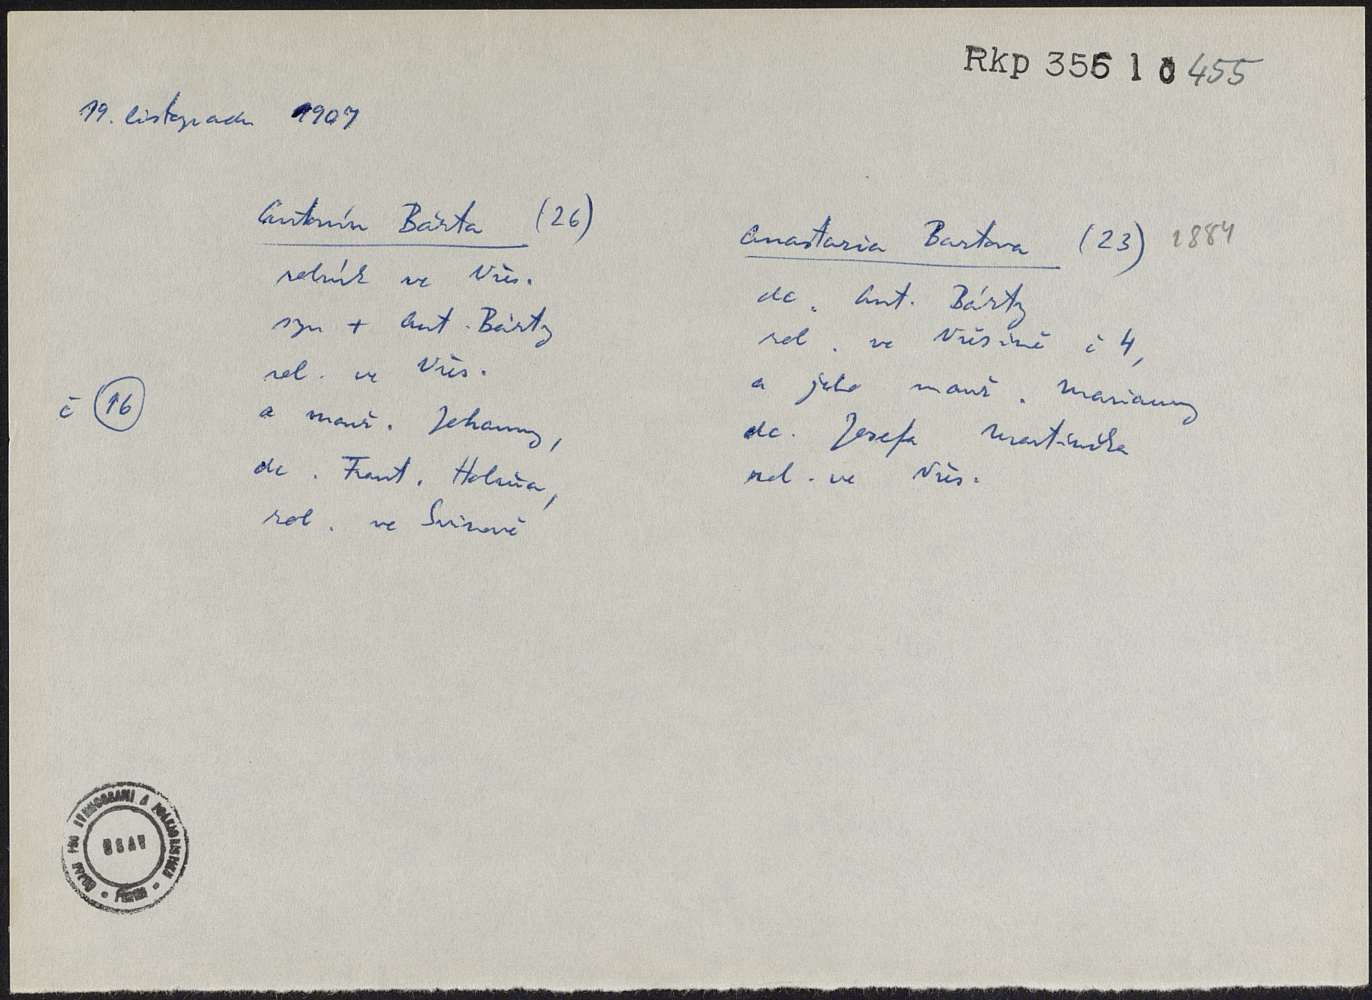 Rkp 356 10 455
19. listopadu 1907
Antonín Bárta (26)
rolník ve Vřes.
syn + Ant. Bárty
rol. ve Vřes.
č 16
a manž. Johanny,
dc. Frant. Holuša,
rol. ve Svinově
Anastazia Bartova (23) 1884
dc. Ant. Bárty
rol. ve Vřesině č 4,
a jeho manž. Marianny
dc. Josefa Martiníka
rol. ve Vřes.
ÚSTAV PRO ETHNOGRAFII A FOLKLORISTIKU
ČSAV
PRAHA